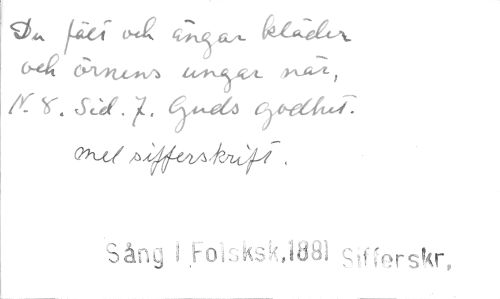 Du fält och ängar kläder
och örnens ungar när,
N. 8. Sid. 7. Guds godhet.
mel sifferskrift.
Sång i Folsksk,1881 Sifferskr,